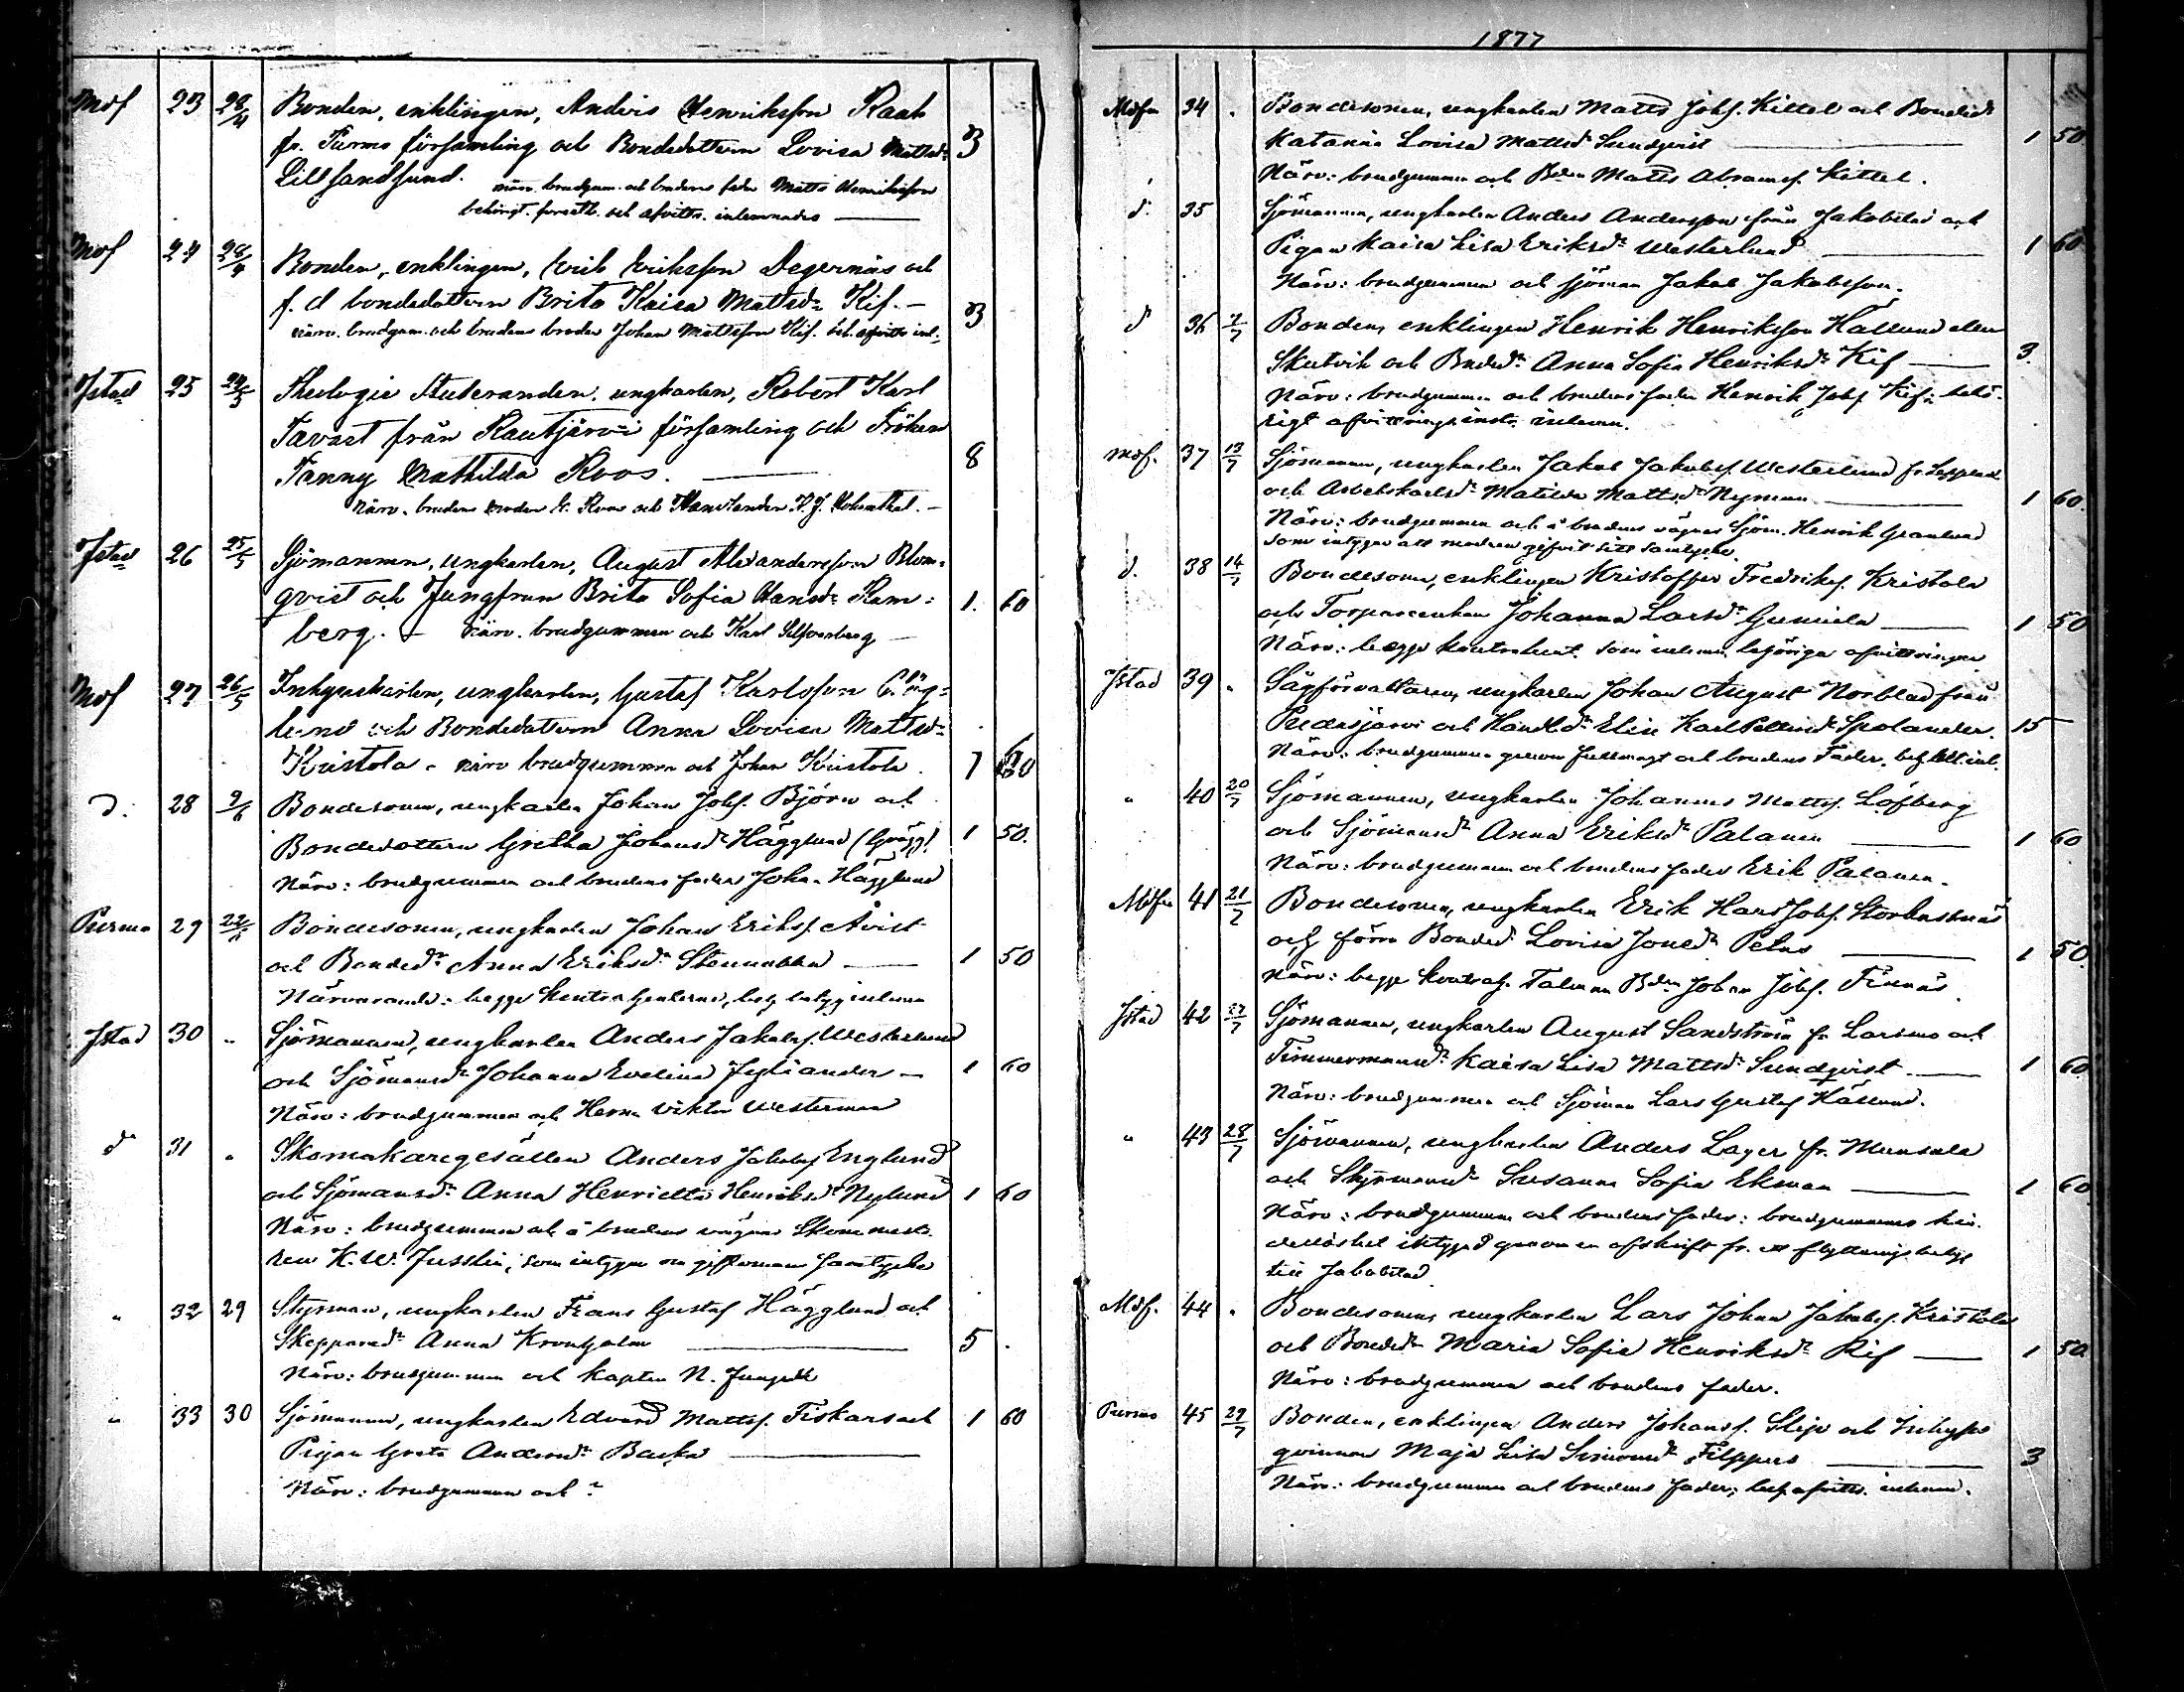 Mof 23 28/4 Bonden, enklingen, Anders Henriksson Raak
fr. Purmo församling och Bondedottern Lovisa Mattsdr 3
Lillsandsund. närv. brudgum. och brudens fader Matts Henriksson
behörigt. och afvittr. inlemnades
Mof 24 28/4 Bonden, enklingen, Erik Eriksson Degernäs och
f. d bondedottern Brita Kaisa Mattsdr Kif. — 3
närv. brudgum. och brudens broder Johan Mattsson Kif. beh. afvittr. inl.
Jstad 25 24/5 Theologie Studeranden, ungkarlen, Robert Karl
Tavast från Rautjärvi församling och Fröken 8
Fanny Mathilda Roos.
närv. brudens broder G. Roos och Handlanden
Jstad 26 25/5 Sjömannen, ungkarlen, August Alexandersson Blom=
qvist och Jungfrun Brita Sofia Hansdr Ram= 1. 60
berg. — närv. brudgummen och Karl Silfverberg —
Mof 27 26/5 Inhyseskarlen, ungkarlen, Gustaf Karlsson
och Bondedottern Anna Lovisa Mattsdr
Kristola - närv brudgummen och Johan Kristola. 1 60
D: 28 9/6 Bondesonen, ungkarlen Johan Johs. Björn och
Bondedottern Gretha Johansdr Hägglund (Grägg) 1 50.
Närv: brudgummen och brudens fader Johan Hägglund
Purmo 29 22/6 Bondesonen, ungkarlen Johan Eriks. Åvist
och Bonded. Anna Eriksdr Stenvabba — 1 50
Närvarande: begge kontrahenterne, beh. betyg inlemn
Jstad 30 " Sjömannen, ungkarlen Anders Jakobs. Westerlund
och Sjömansdr Johanna Evelina Jyliander — 1 60
Närv: brudgummen och Herrn Viktor Westerman
do 31 " Skomakaregesällen Anders Jakobs. Englund
och Sjömansdr Anna Henrietta Henriksdr Nylund 1 60
Närv: brudgummen och å brudens vägnar Skom.mästa-
ren K. W. Jusslin, som intygar om giftomans samtycke
" 32 29 Styrman, ungkarlen Frans Gustaf Hägglund och
Skeppared. Anna Kronholm — 5
Närv: brudgummen och kapten N.
" 33 30 Sjömannen, ungkarlen Edvard Matts. Fiskars och 1 60
Pigan Greta Andersdr Backa —
Närv: brudgummen och ?
1877
Mofm 34 " Bondesonen, ungkarlen Matts Johs. Kittel och Bonded.
Katarina Lovisa Mattsd Sundqvist — 1 50
Närv: brudgummen och Bden Matts Abrams. Kittel.
d. 35 Sjömannen, ungkarlen Anders Andersson från Jakobstad och
Pigan Kaisa Lisa Eriksdr Westerlund — 1 60
Närv: brudgummen och sjöman Jakob Jakobsson.
d 36 7/7 Bonden, enklingen Henrik Henriksson Hällund eller
Skutvik och Bonded. Anna Sofia Henriksdr Kif — 3.
Närv: brudgummen och brudens fader Henrik Johs. Kif; behö-
rigt afvittringsinstr. inlemn.
Mof. 37 13/7 Sjömannen, ungkarlen Jakob Jakobs. Westerlund fr.
och Arbetskarlsd. Matilda Mattsdr Nyman — 1 60.
Närv: brudgummen och å brudens vägnar Sjöm. Henrik Granlund
som intygar att modren gifvit sitt samtycke.
d. 38 14/7 Bondesonen, enklingen Kristoffer Fredriks. Kristola
och Torpareenkan Johanna Larsdr Gunnila — 1 50
Närv: begge kontrahent. som inlemn. behöriga afvittringar
Jstad 39 " Sågförvaltaren, ungkarlen Johan August Norblad från
Pedersjärvi och Handl.dr Elin Spolander. 15 —
Närv: brudgummen genom fullmagt och brudens Fader, inl.
" 40 20/7 Sjömannen, ungkarlen Johannes Matts. Löfberg
och Sjömansdr Anna Eriksdr Palanen — 1 60
Närv: brudgummen och brudens fader Erik Palanen.
Mofm 41 21/7 Bondesonen, ungkarlen Erik Hans Johs. Storbastnäs
och förra Bonded. Lovisa Jonsdr Pelas — 1 50.
Närv: begge kontrah. Talman Bden Johan Johs. Finnäs
Jstad 42 27/7 Sjömannen, ungkarlen August Sandström fr Larsmo och
Timmermansdr Kaisa Lisa Mattsdr Sundqvist. — 1 60
Närv: brudgummen och Sjöman Lars Gustaf Hällund.
" 43 28/7 Sjömannen, ungkarlen Anders Lager fr. Munsala
och Susanna Sofia Ekman — 1 60
Närv: brudgummen och brudens fader: brudgummens hin-
derlöshet intygad genom en afskrift fr. ett flyttningsbetyg
till Jakobstad.
Mof. 44 " Bondesonen, ungkarlen Lars Johan Jakobs. Kristola
och Bonded. Maria Sofia Henriksdr Kif — 1 50
Närv: brudgummen och brudens fader.
Purmo 45 29/7 Bonden, enklingen Anders Johans. Slip och Inhyses
qvinnan Maja Lisa Simonsdr Filppus — 3
Närv: brudgummen och brudens fader; beh. afvittr. inlemn.